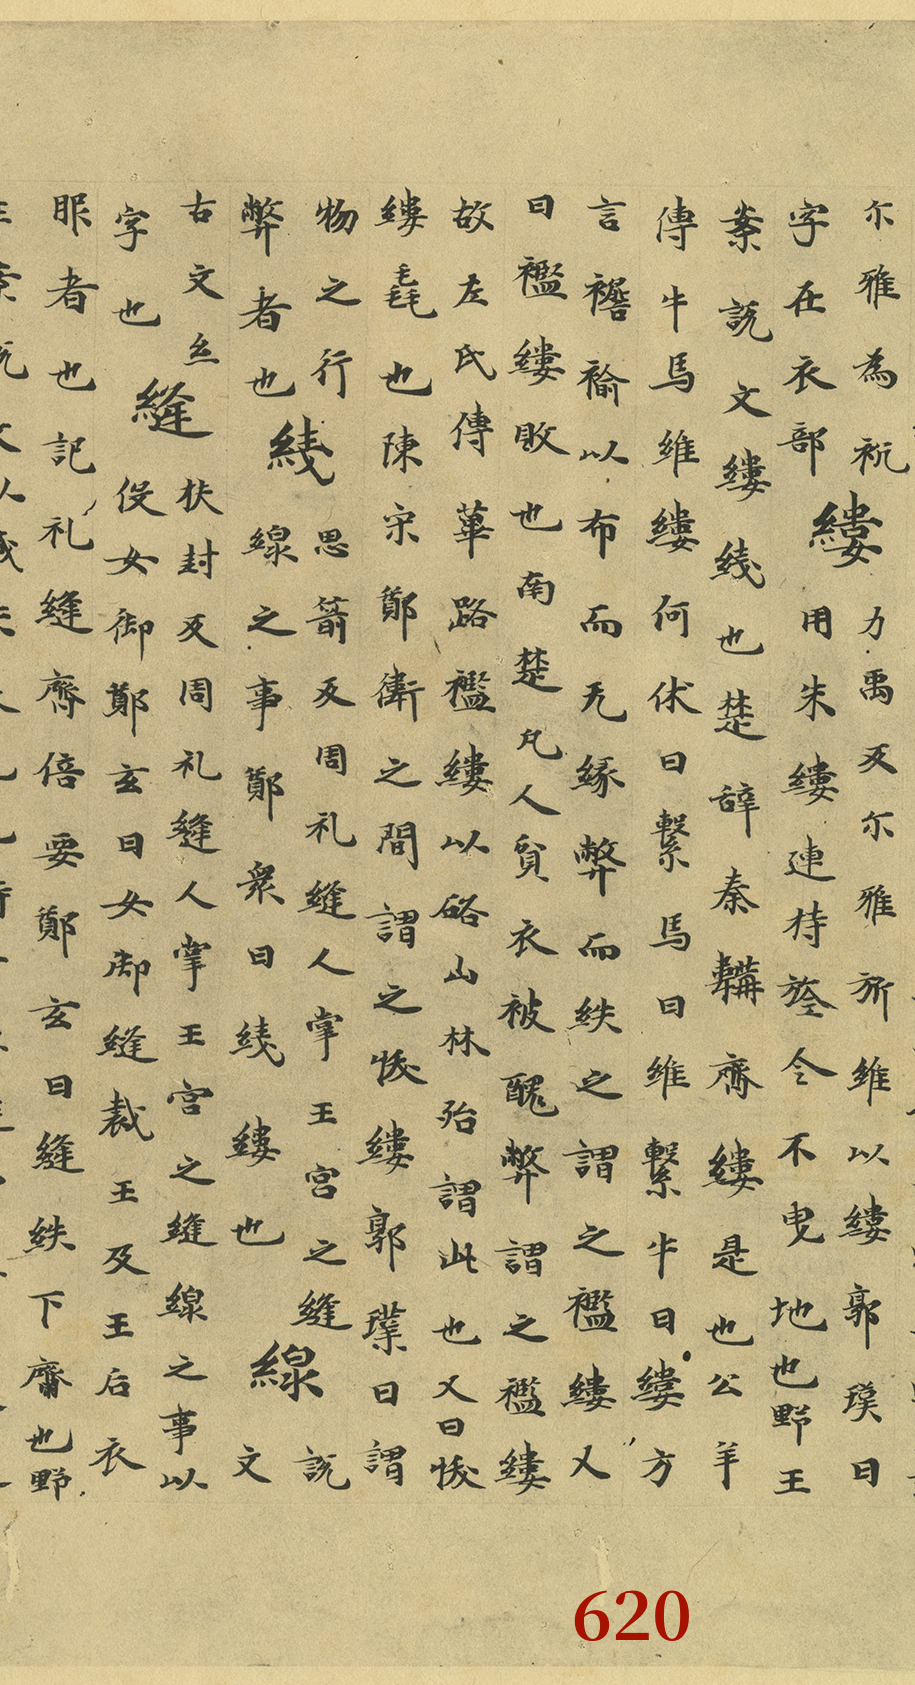 尓雅為䘺
字在衣部
縷
力禹反尓雅所維以縷郭璞曰
用朱縷連持旒令不曳地也野王
案說文縷綫也楚辞秦韝齊縷是也公羊
傳牛馬維縷何休曰繫馬曰維繫牛曰縷方
言襜褕以布而无緣弊而紩之謂之襤縷又
曰襤縷敗也南楚凡人貧衣被醜弊謂之襤縷
故左氏傳蓽路襤縷以䂮山林殆謂此也又曰㥄
縷毳也陳宋鄭衛之間謂之㥄縷郭璞曰謂
物之行
弊者也
綫
思箭反周礼縫人掌王宮之縫
線之事鄭衆曰綫縷也
線
說
文
古文糸
字也
縫
扶封反周礼縫人掌王宮之縫線之事以
伇女御鄭玄曰女御縫裁王及王后衣
眼者也記礼縫齊倍要鄭玄曰縫紩下齊也野
620